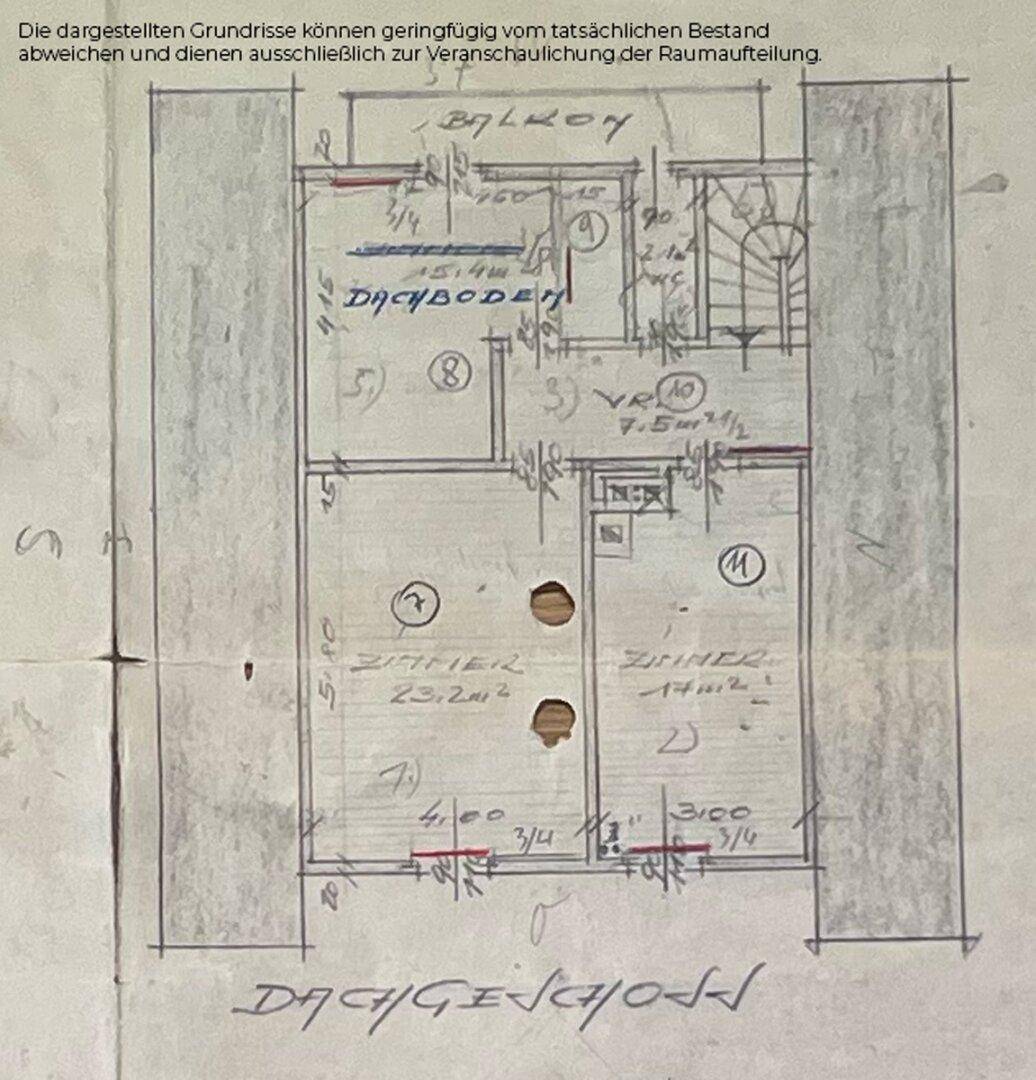 Die dargestellten Grundrisse können geringfügig vom tatsächlichen Bestand
abweichen und dienen ausschließlich zur Veranschaulichung der Raumaufteilung.
BALKON
20
90
3/4
160
15
9
90
2.1m²
WC
15.4m²
DACHBODEN
415
5.)
8
3)
VR.
10
7.5m²
1/2
85
190
85
190
15
11
7
5.80
ZIMMER
23.2m²
ZIMMER
17m²
2)
1.)
4.00
3/4
3.00
3/4
90
110
90
110
20
S
N
DACHGESCHOSS